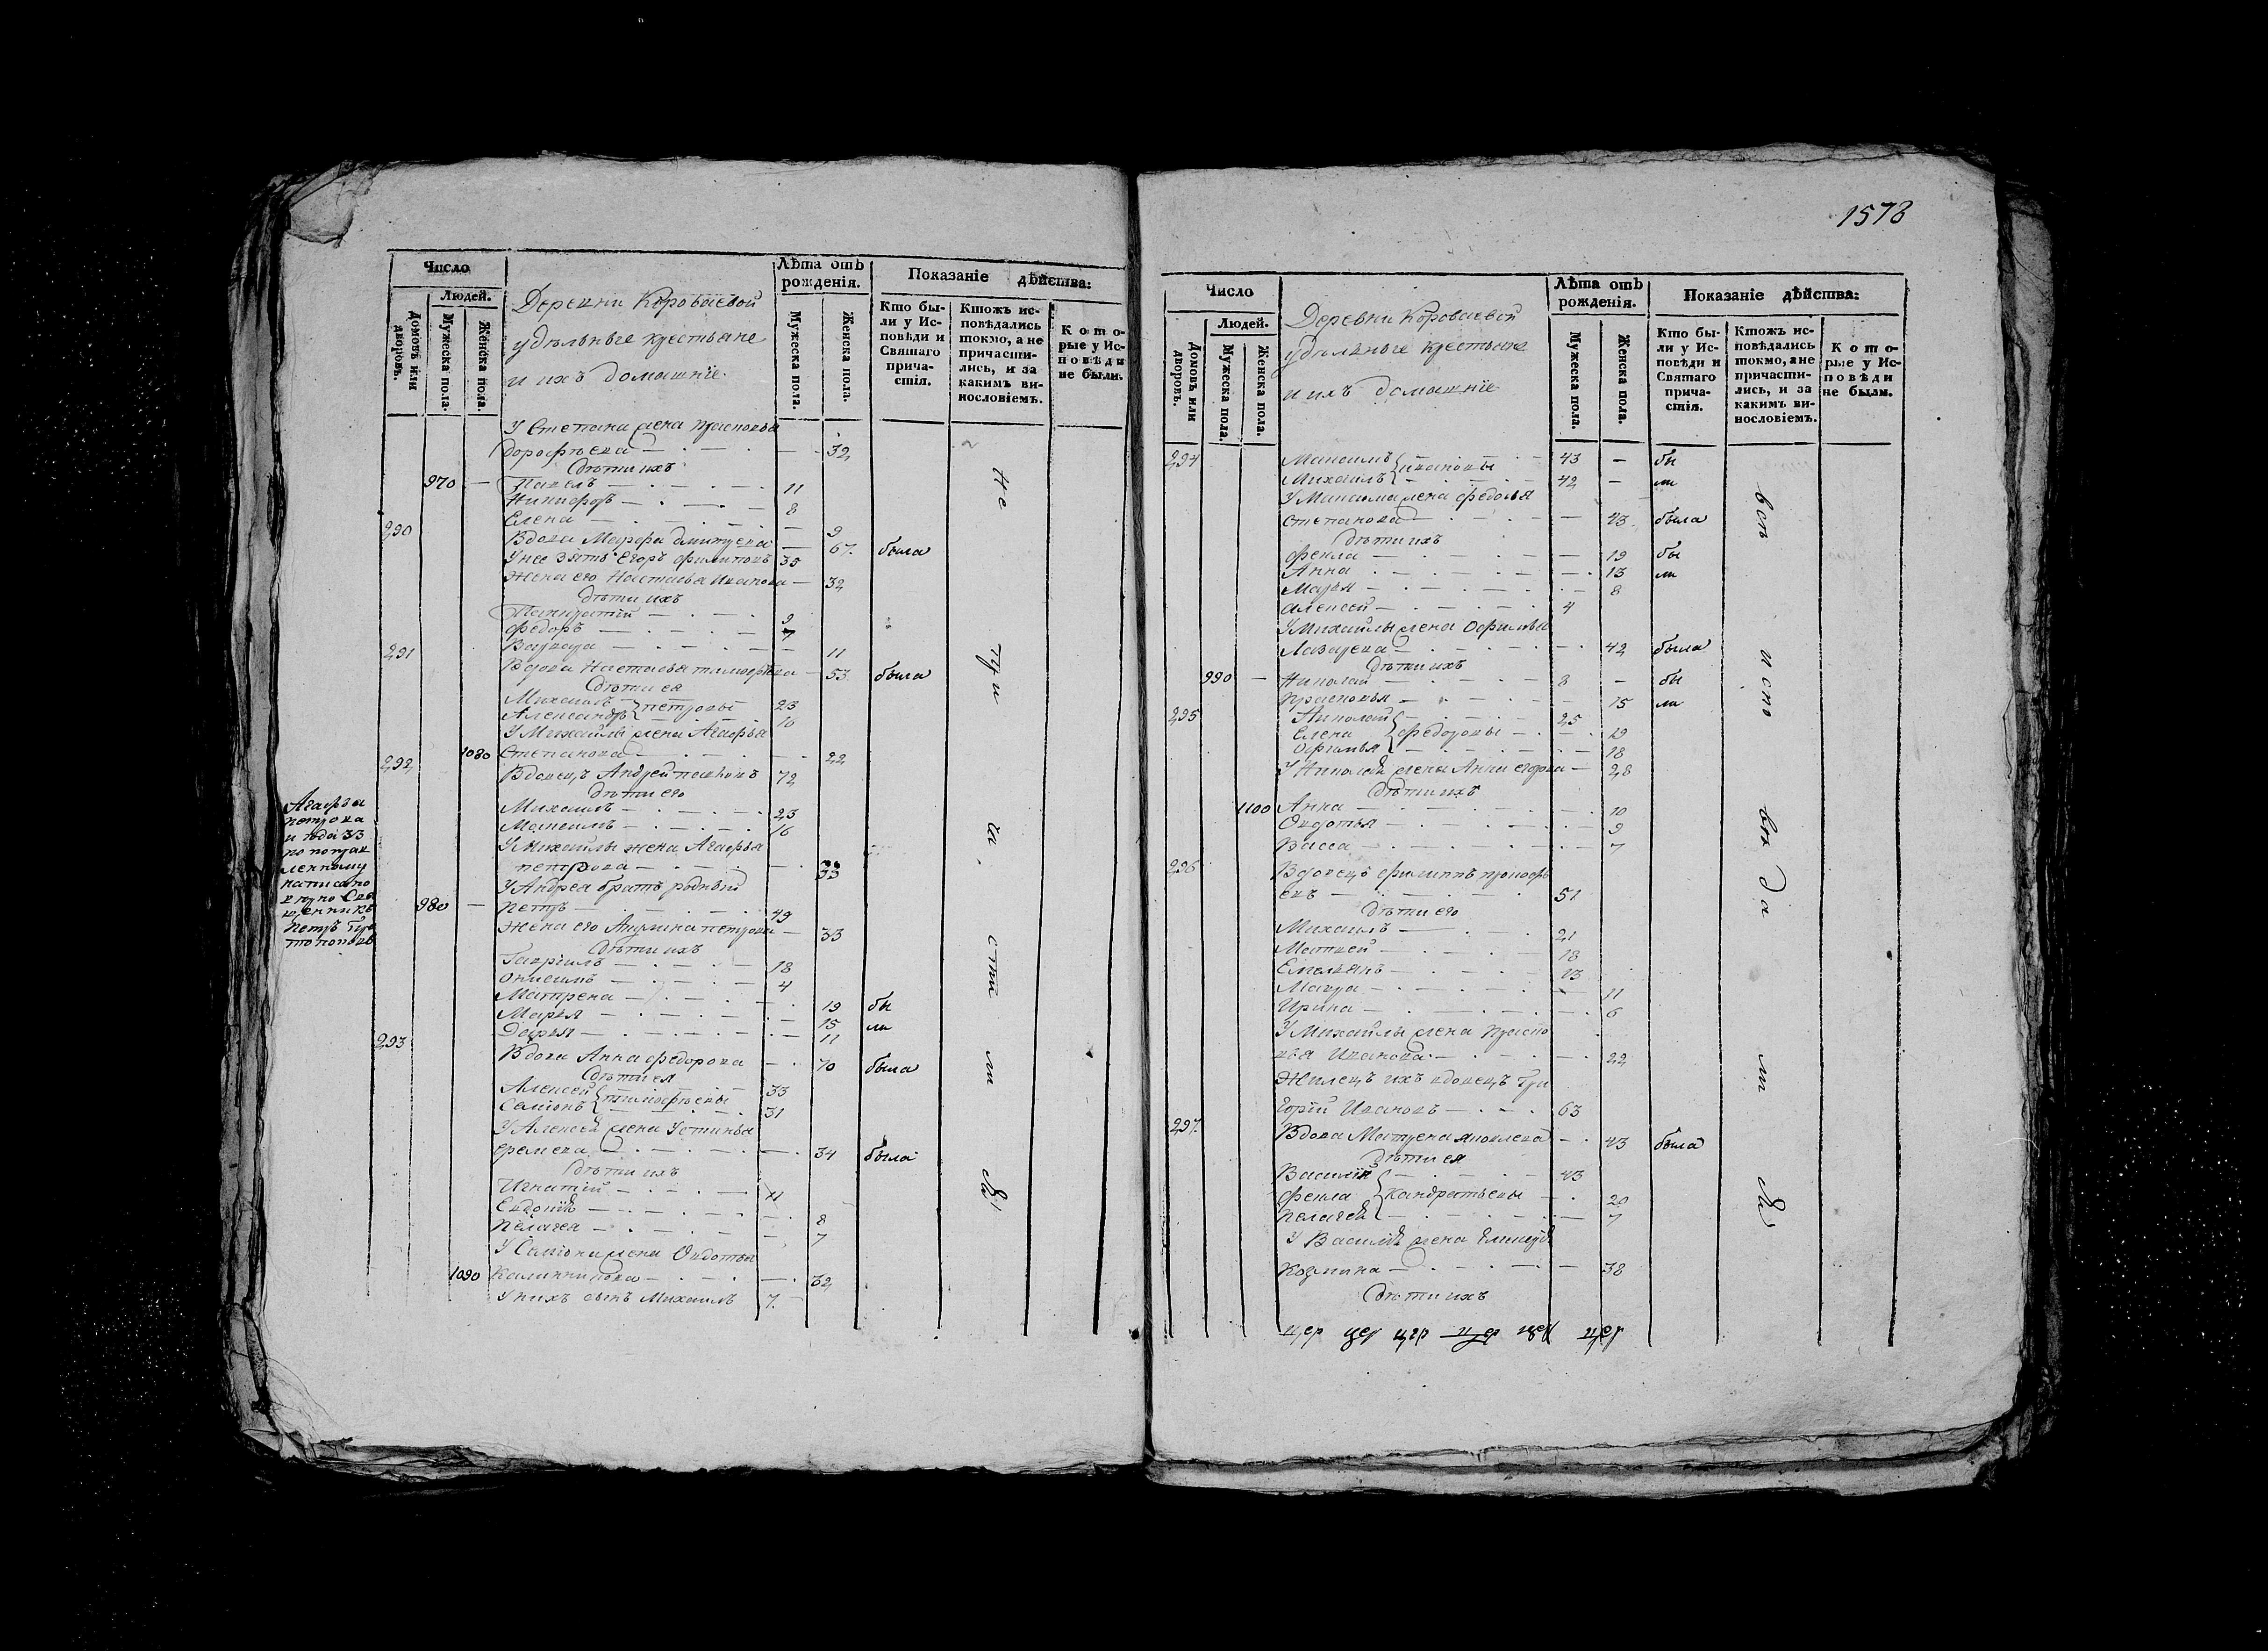 1578
Число
Людей.
Домовъ или дворовъ.
Мужеска пола.
Женска пола.
Деревни Короваевой
удѣльные крестьяне
и ихъ домашніе
Лѣта отъ рожденія.
Мужеска пола.
Женска пола.
Показаніе дѣйства:
Кто бы-
ли у Ис-
повѣди и
Святаго
прича-
стія.
Ктожъ ис-
повѣдались
токмо, а не
причасти-
лись, и за
какимъ ви-
нословіемъ.
Кото-
рые у Ис-
повѣди
не были.
У Степана жена Прасковья
Дорофѣева 32
Дѣти ихъ
970 Павелъ 11
Никифоръ 8
Елена 9
290 Вдова Марфа Дмитрева 67 была
У нее зять Егоръ Филиповъ 35
Жена его Настасья Иванова 32
Дѣти ихъ
Панкратій 9
Федоръ 7
Варвара 11
291 Вдова Настасья Тимофѣева 53 была
Дѣти ея
Михаилъ Петровы 23
Александръ 16
У Михаилы жена Агафья
1080 Степанова 22
292 Вдовецъ Андрей Павловъ 72
Дѣти его
Михаилъ 23
Максимъ 16
У Михаилы жена Агафья
Петрова 33
У Андрея братъ родный
980 Петръ 49
Жена его Акулина Петрова 33
Дѣти ихъ
Гавріилъ 18
Онисимъ 4
Матрена 19 бы
Марья 15 ли
Дарья 11
293 Вдова Анна Федорова 70 была
Дѣти ея
Алексей Тимофѣевы 33
Семіонъ 31
У Алексея жена Устинья
Еремева 34 была
Дѣти ихъ
Игнатій 11
Евдокія 8
Пелагея 7
У Семіона жена Овдотья
1090 Калинникова 32
У нихъ сынъ Михаилъ 7
Агафья
Петрова
и года 33
по поправ
ленному
написано
вѣрно Свя
щенникъ
Петръ
не при ча сти ли ся
Число
Людей.
Домовъ или дворовъ.
Мужеска пола.
Женска пола.
Деревни Короваевой
удѣльные крестьяне
и ихъ домашніе
Лѣта отъ рожденія.
Мужеска пола.
Женска пола.
Показаніе дѣйства:
Кто бы-
ли у Ис-
повѣди и
Святаго
прича-
стія.
Ктожъ ис-
повѣдались
токмо, а не
причасти-
лись, и за
какимъ ви-
нословіемъ.
Кото-
рые у Ис-
повѣди
не были.
294 Максимъ Ивановы 43 бы
Михаилъ 42 ли
У Максима жена Федосья
Степанова 43 была
Дѣти ихъ
Фекла 19 бы
Анна 13 ли
Марья 8
Алексей 4
У Михаилы жена Офимья
Лазарева 42 была
Дѣти ихъ
990 Николай 8 бы
Прасковья 15 ли
295 Николай 25
Елена Федоровы 19
Офимья 18
У Николая жена Анна Егорова 28
Дѣти ихъ
1100 Анна 10
Овдотья 9
Васса 7
296 Вдовецъ Филиппъ Прокофь
евъ 51
Дѣти его
Михаилъ 21
Матвей 18
Емельянъ 13
Мавра 11
Ирина 6
У Михаилы жена Праско
вья Иванова 22
Жилецъ ихъ вдовецъ Гри
горій Ивановъ 63
297 Вдова Матрена Яковлева 43 была
Дѣти ея
Василій 43
Фекла Кандратьевы 20
Пелагея 7
У Василія жена
Козмина 38
Дѣти ихъ
всѣ испо вѣ да ли ся